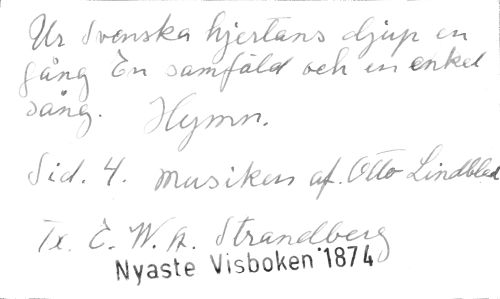 Ur Svenska hjertans djup en
gång En samfäld och en enkel
sång. Hymn.
Sid. 4. Musiken af. Otto Lindblad
Tx. C. W. A. Strandberg
Nyaste Visboken 1874